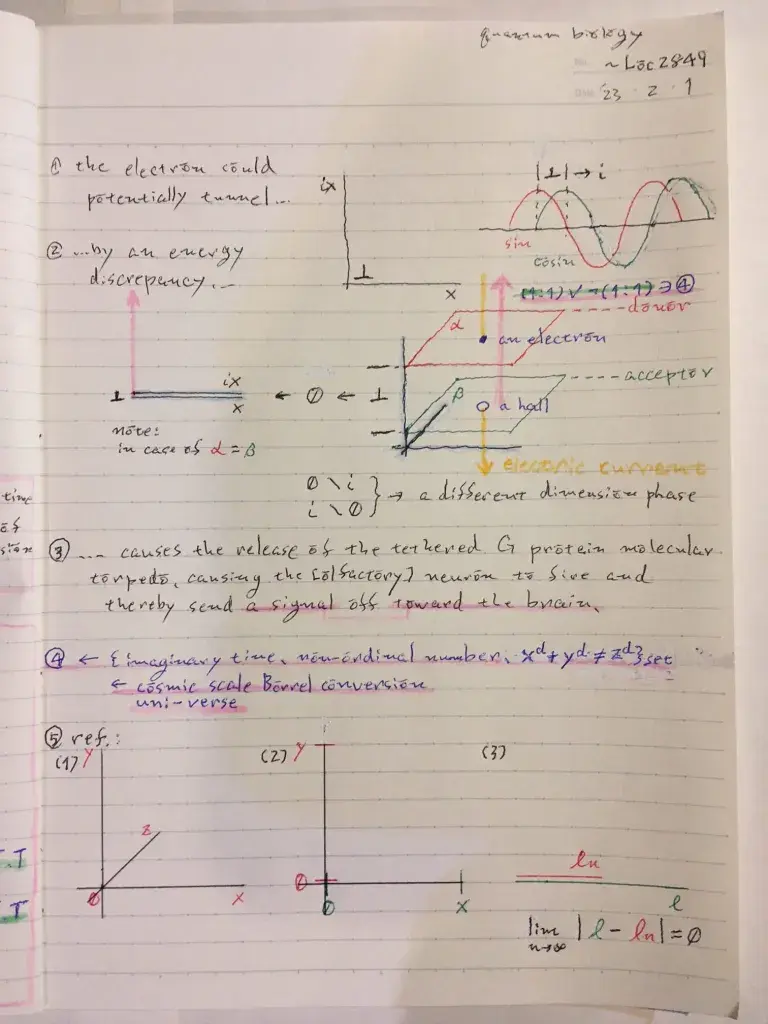 quantum biology
~ Loc 2849
23 . 2 . 1
① the electron could
potentially tunnel...
② ...by an energy
discrepancy...
ix
⊥
x
|⊥| → i
sin
cosin
(1:1) ✓ → (1:1) ∋ ④
α
donor
an electron
acceptor
β
a hall
electronic current
⊥
ix
x
← ∅ ← ⊥
note:
in case of α = β
0 \ i
i \ 0 } → a different dimension phase
③ .... causes the release of the tethered G protein molecular
torpedo, causing the [olfactory] neuron to fire and
thereby send a signal off toward the brain.
④ ← {imaginary time, non-ordinal number, x^d + y^d ≠ z^d} set
← cosmic scale Borrel conversion
uni-verse
⑤ ref.:
(1) y
z
0
x
(2) y
0
0
x
(3)
ln
l
lim |l - ln| = 0
n→∞
time
of
.T
.T